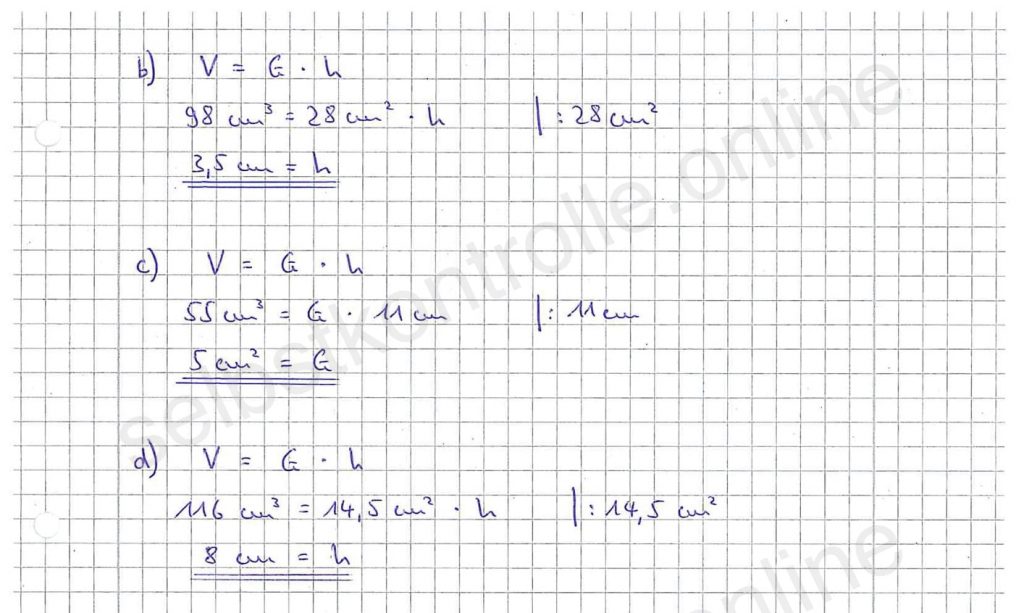 b) V = G · h
98 cm³ = 28 cm² · h |: 28 cm²
3,5 cm = h
c) V = G · h
55 cm³ = G · 11 cm |: 11 cm
5 cm² = G
d) V = G · h
116 cm³ = 14,5 cm² · h |: 14,5 cm²
8 cm = h
selbstkontrolle.online
online